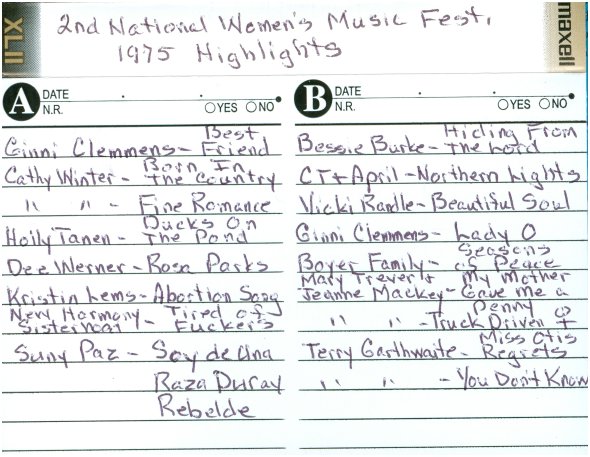 XLII
maxell
2nd National Women's Music Fest.
1975 Highlights
A DATE
N.R. YES NO
Best
Ginni Clemmens - Friend
Born In
Cathy Winter - The Country
" " - Fine Romance
Ducks On
Holly Tanen - The Pond
Dee Werner - Rosa Parks
Kristin Lems - Abortion Song
New Harmony - Tired of
Sisterhood - Fuckers
Suny Paz - Soy de Una
Raza Pura y
Rebelde
B DATE
N.R. YES NO
Hiding From
Bessie Burke - The Lord
CT + April - Northern Lights
Vicki Randle - Beautiful Soul
Ginni Clemmens - Lady O
Seasons
Boyer Family - of Peace
Mary Trever + My Mother
Jeanne Mackey - Gave me a
Penny
" " - Truck Driven
Miss Otis
Terry Garthwaite - Regrets
" " - You Don't Know